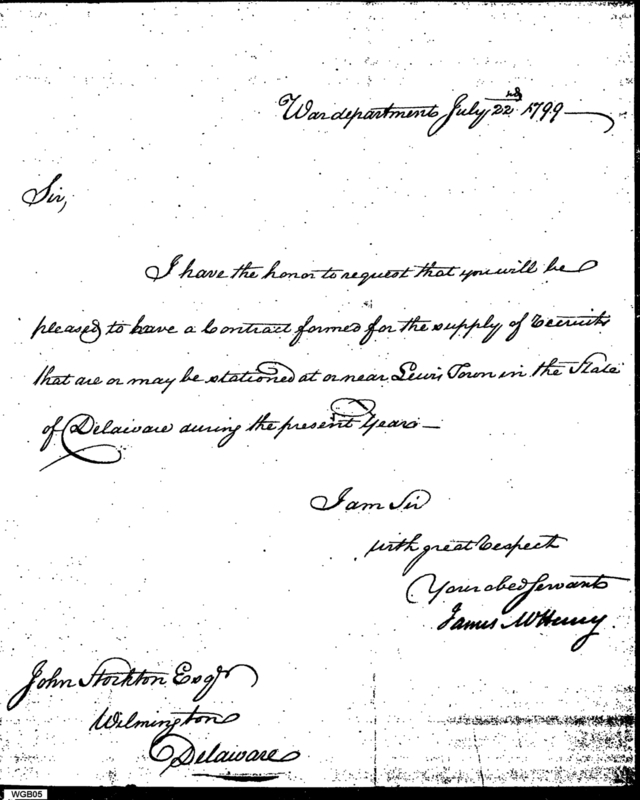 War department July 22nd 1799
Sir,
I have the honor to request that you will be
pleased to have a Contract formed for the supply of Recruits
that are or may be stationed at or near Lewis Town in the State
of Delaware during the present Year—
I am Sir
with great respect
Your obed Servant
James McHenry
John Stockton Esqr
Wilmington
Delaware
WGB05